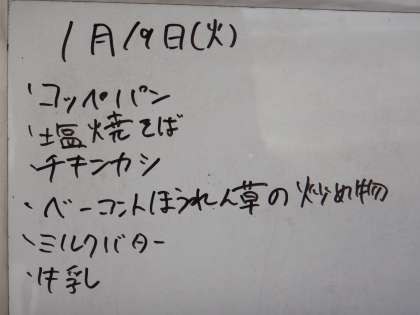 1月19日(火)
・コッペパン
・塩焼そば
・チキンカシ
・ベーコントほうれん草の炒め物
・ミルクバター
・牛乳